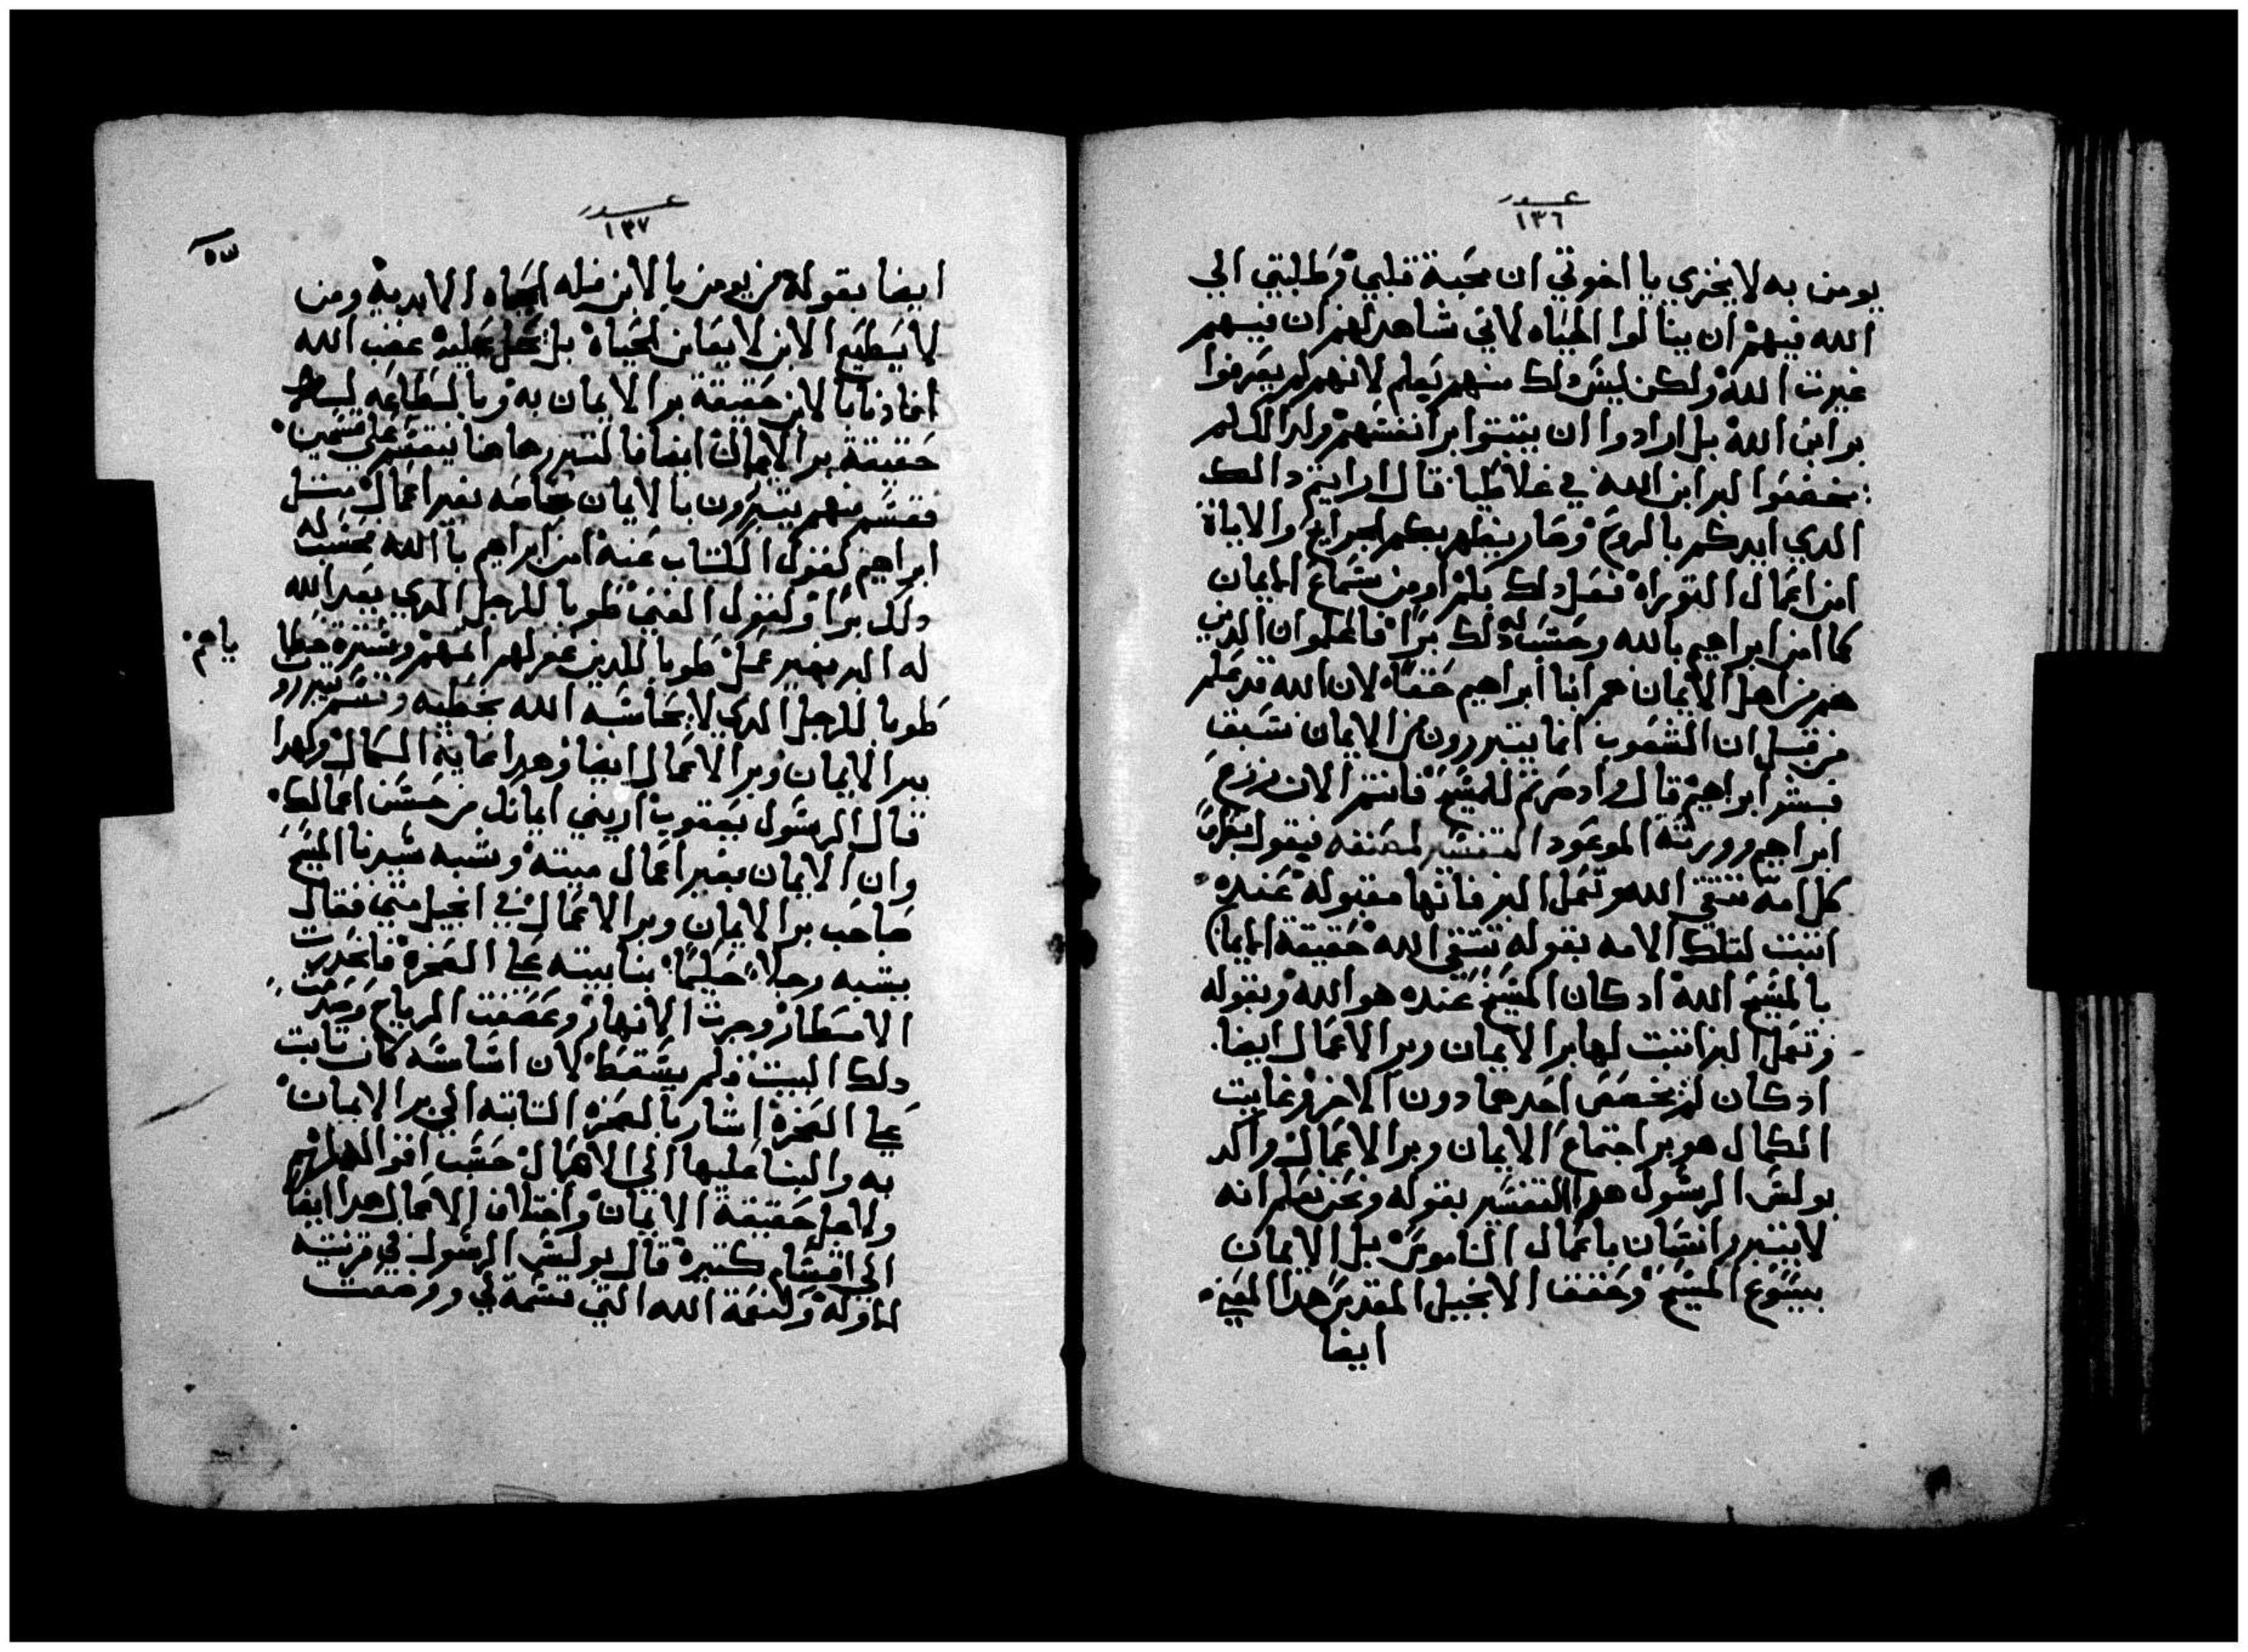 عدد
١٣٦
يومن به لا يخزي يا اخوتي ان محبة قلبي وطلبتي الي
الله فيهم ان ينالوا الحياه لاني شاهد لهم ان فيهم
غيرت الله ولكن ليس دلك منهم بعلم لانهم لم يعرفوا
بر ابن الله بل ارادوا ان يتبتوا بر انفسهم ولدالك لم
يخضعوا لبر ابن الله في غلاطيا قال ارايتم دالك
الدي ايدكم بالروح وصار يظهر بكم الجرايح والاياة
امن اعمال التوراه فعل دلك بكم او من سماع الايمان
كما امن ابراهيم بالله وحسب له دلك برا فاعلموا ان الدين
هم من اهل الايمان هم ابنا ابراهيم حقا لان الله قد علم
من قبل ان الشعوب انما يتبررون من الايمان سبق
فبشر ابراهيم قال واد صرتم للمسيح فانتم الان من زرع
ابراهيم وورثة الموعود التفسير لمصنفه فيقول بطرس
كل امة تتقي الله وتعمل البر فانها مقبولة عنده
اتبت لتلك الامه بقوله تتقي الله حقيقة الايمان
بالمسيح الله اد كان المسيح عنده هو الله وبقوله
وتعمل البر اتبت لها بر الايمان وبر الاعمال ايضا
اد كان لم يخصص احدهما دون الاخر وغايت
الكمال هو بر اجتماع الايمان وبر الاعمال واكد
بولس الرسول هدا التفسير بقوله ونحن نعلم انه
لا يتبرر انسان باعمال الناموس بل الايمان
بيسوع المسيح وحقق الانجيل المقدس هدا المعني
ايضا
عدد
١٣٧
ايضا بقوله من يومن بالابن فله الحياه الابدية ومن
لا يطيع الابن لا يعاين الحياة بل يحل عليه غضب الله
افادنا بالابن حقيقة بر الايمان به وبالطاعه
حقيقة بر الاعمال ايضا فالتبرر هاهنا ينقسم علي قسمين
فقسم منهم يتبررون بالايمان خاصه بغير اعمال متل
ابراهيم كقول الكتاب عنه امن ابراهيم بالله فحسب له
دلك برا وكقول المغني طوبا للرجل الدي يعد الله
له البر بغير عمل طوبا للدين غفر لهم اتمهم وسترة خطا
ياهم
طوبا للرجل الدي لا يحاسبه الله بخطيه وقسم يتبررو
ببر الايمان وبر الاعمال ايضا وهدا غاية الكمال ولهدا
قال الرسول يعقوب اريني ايمانك من حسن اعمالك
وان الايمان بغير اعمال ميته وشبه سيدنا المسيح
صاحب بر الايمان وبر الاعمال في انجيل متي فقال
يشبه رجلا حكيما بنا بيته علي الصخرة فانحدرت
الامطار وجرت الانهار وعصفت الرياح وصدمت
دلك البيت فلم يسقط لان اساسه كان تابت
علي الصخرة اشار بالصخره التابته الي بر الايمان
به والبنا عليها الي الاعمال حسب
ولاجل حقيقة الايمان واختلاف الاعمال هدا ايضا
الي اقسام كتيرة قال بولس الرسول في قرنتيه
الاوله ولنعمة الله التي قسمة لي ووضعت